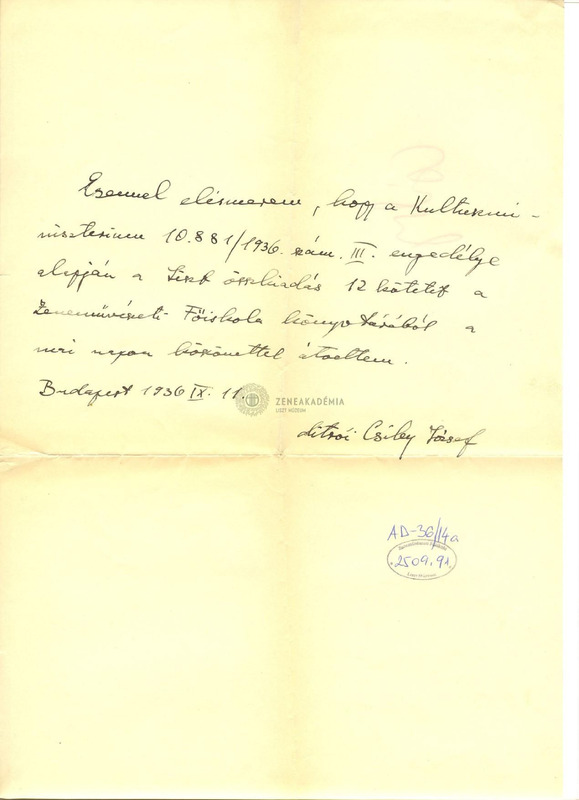 Ezennel elismerem, hogy a Kultuszmi-
nisterium 10.881/1936. szám. III. engedélye
alapján a Liszt összkiadás 12 kötetét a
Zeneművészeti Főiskola könyvtárából a
mai napon köszönettel átvettem.
Budapest 1936 IX. 11.
ZENEAKADÉMIA
LISZT MÚZEUM
ditrói Csiby József
AD-36/14a
2509.91.
Liszt Múzeum